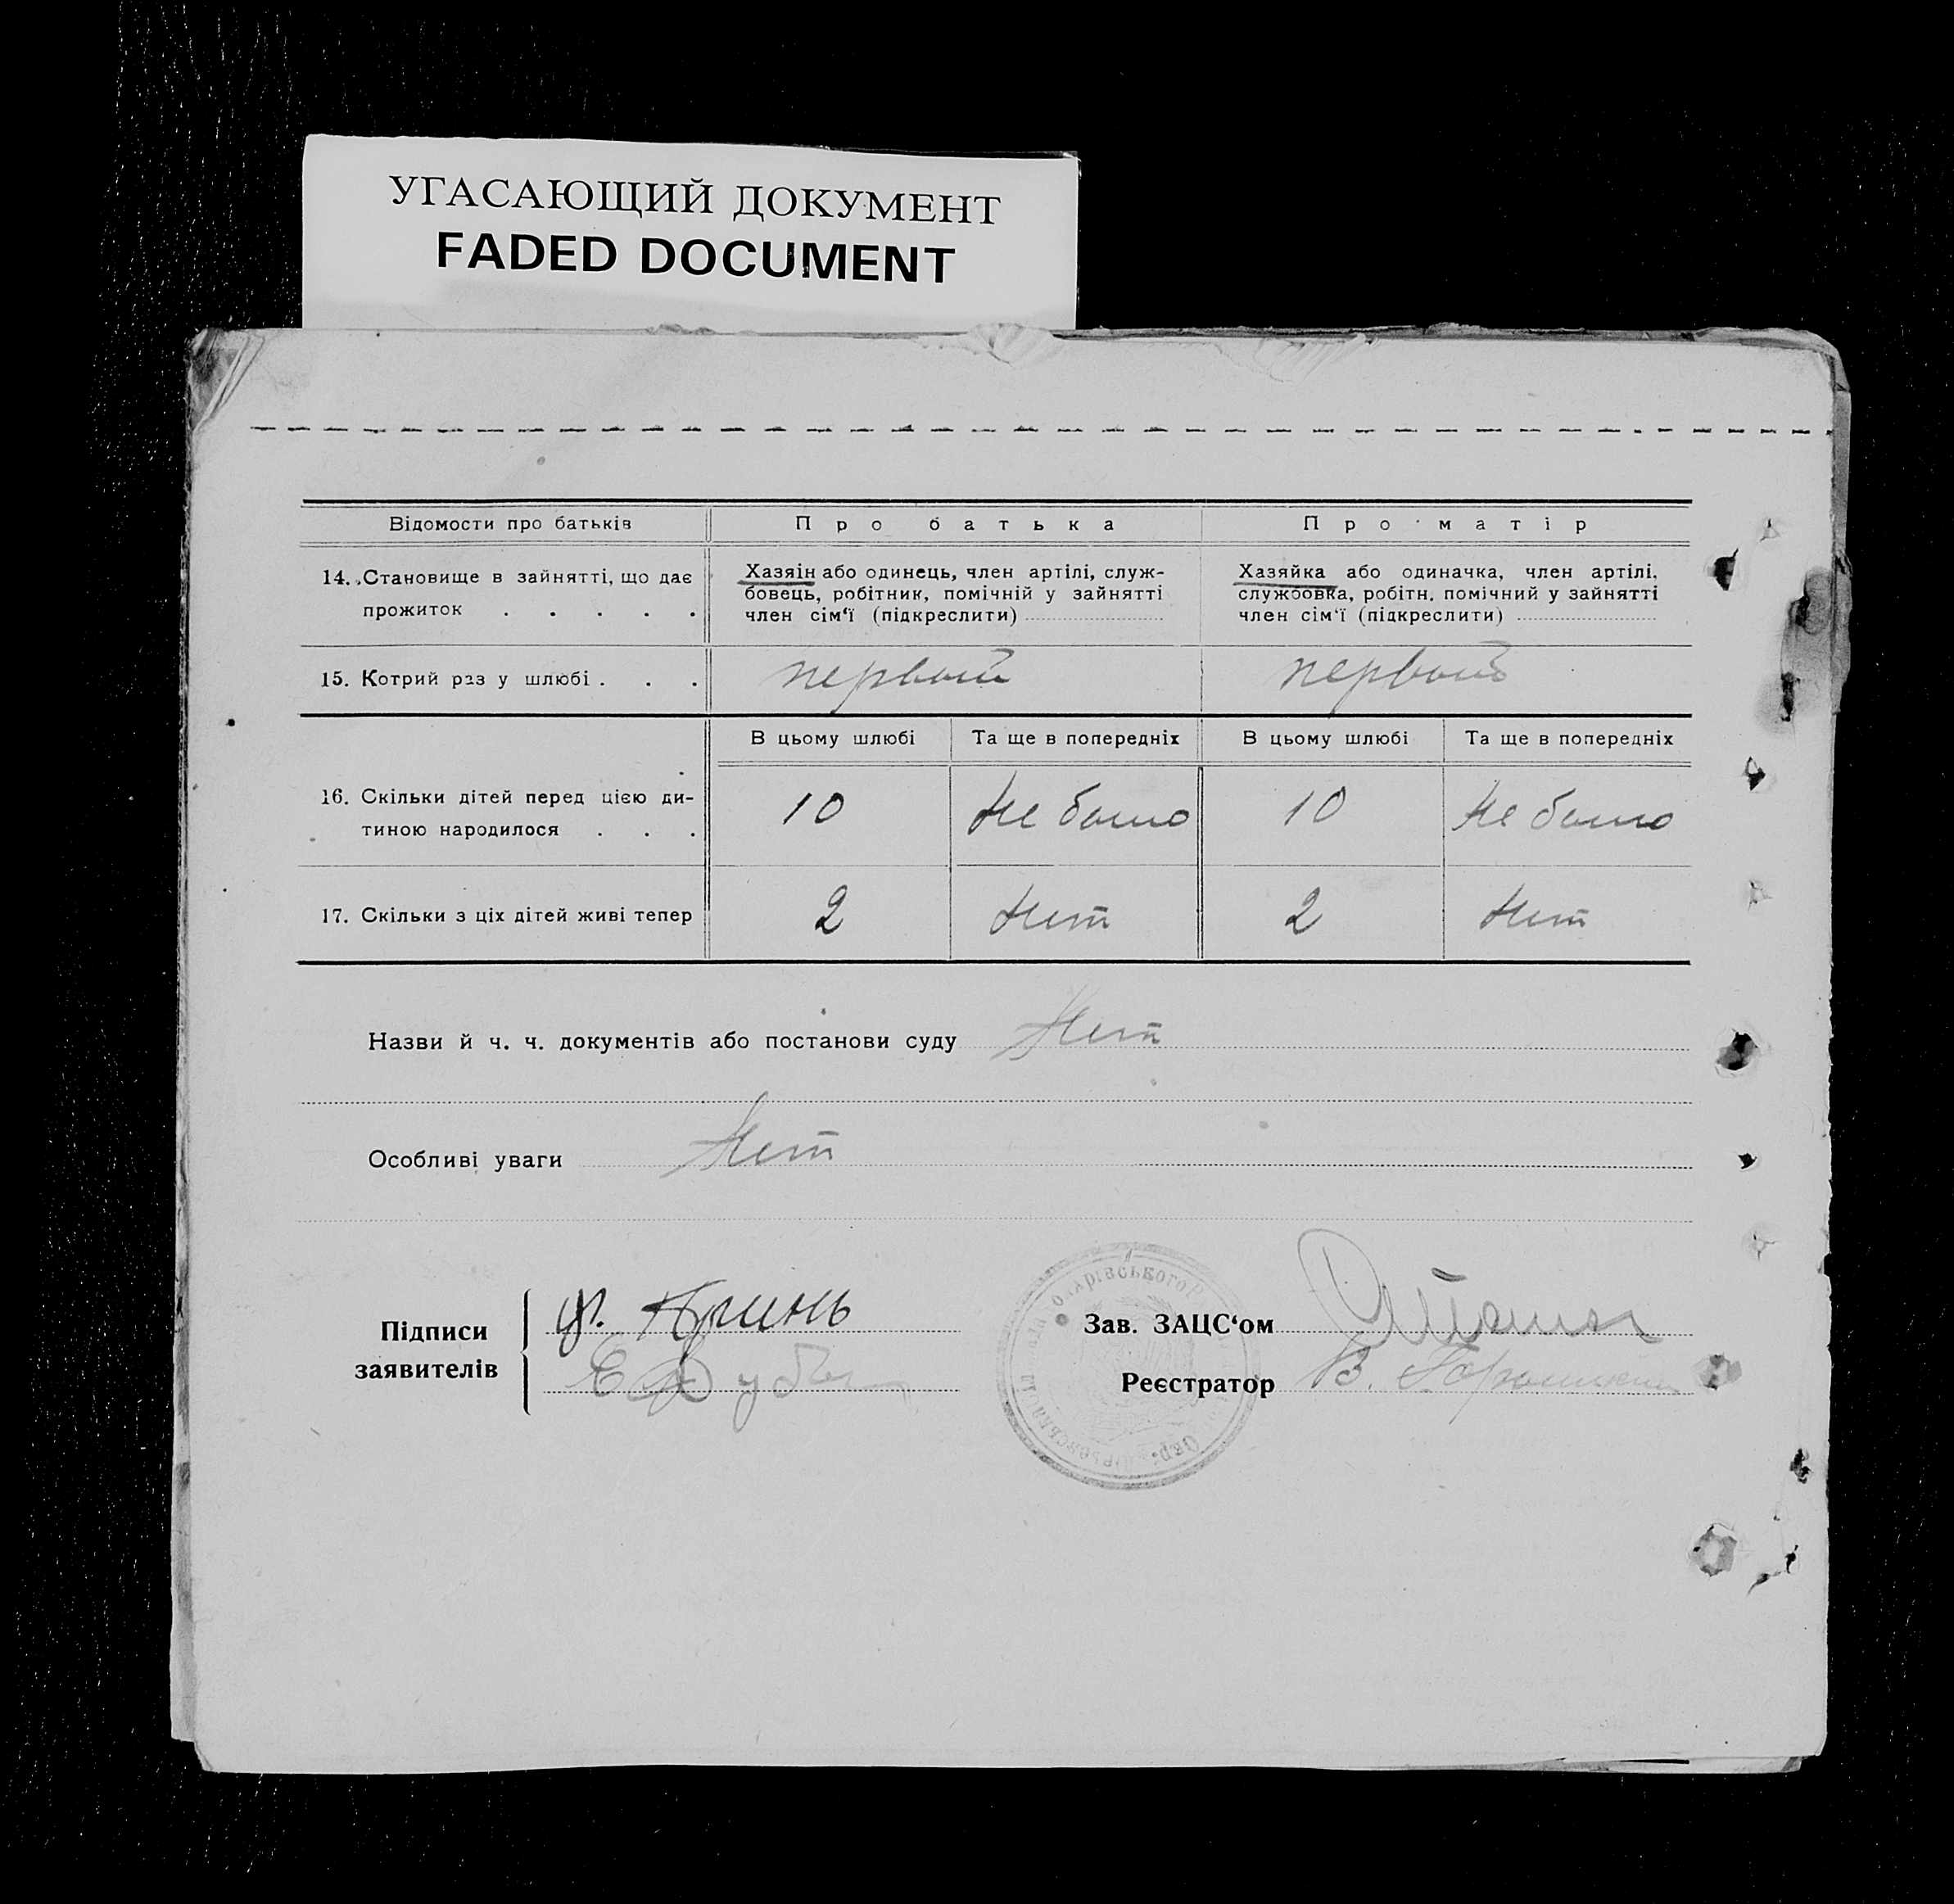 УГАСАЮЩИЙ ДОКУМЕНТ
FADED DOCUMENT
Відомости про батьків
Про батька
Про матір
14. Становище в зайнятті, що дає
прожиток . . . . .
Хазяін або одинець, член артілі, служ-
бовець, робітник, помічній у зайнятті
член сім'ї (підкреслити)
Хазяйка або одиначка, член артілі,
службовка, робітн. помічний у зайнятті
член сім'ї (підкреслити)
15. Котрий раз у шлюбі . . .
первый
первый
В цьому шлюбі
Та ще в попередніх
В цьому шлюбі
Та ще в попередніх
16. Скільки дітей перед цією ди-
тиною народилося . . .
10
Не было
10
Не было
17. Скільки з ціх дітей живі тепер
2
Нет
2
Нет
Назви й ч. ч. документів або постанови суду Нет
Особливі уваги Нет
Підписи
заявителів
Ф. Гринь
Зав. ЗАЦС'ом
Реєстратор В.